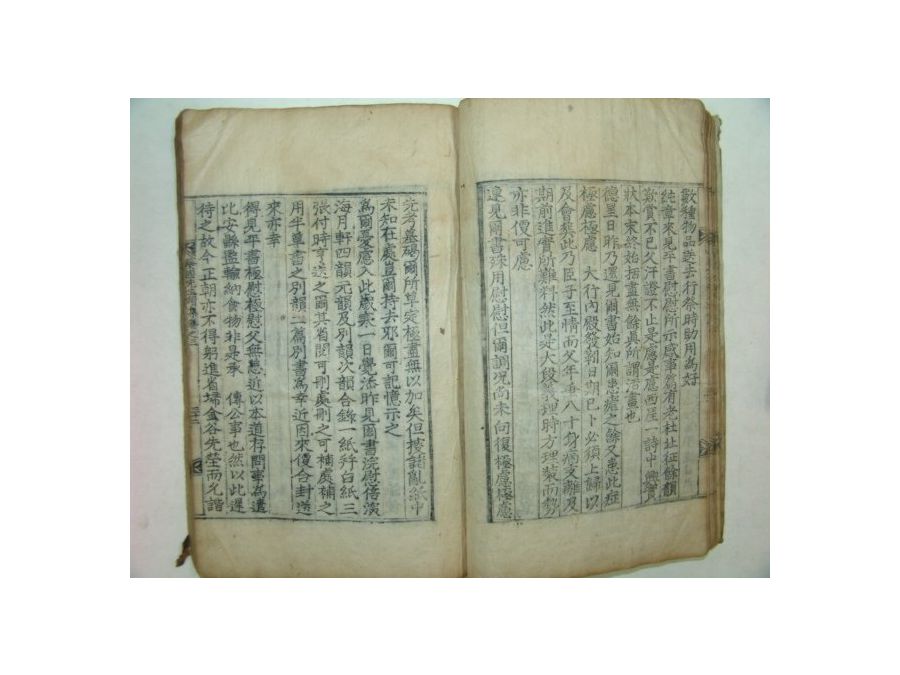 數種物品送去行祭時助用為好
純章來見平書慰慰所示感事篇有老杜北征餘韻
歎賞不已久汗證不止是慮是慮西厓一詩出興實
狀本末終始括盡無餘眞所謂詩畵也
德星日昨乃還見爾書始知爾患瘧之餘又患此症
極慮極慮 大行內殿發靷日期已卜必須上歸以
及會葬此乃臣子至情而父年垂八十身病支離及
期前進實所難料然此是大段義理時方理裝而勢
亦非便可慮
遠見爾書殊用慰慰但爾調况尚未向復極慮極慮
先考墓碣爾所草定極盡無以加矣但搜諸亂紙中
未知在處豈爾持去耶爾可記憶示之
為爾憂慮入此歲來一日覺添昨見爾書浣慰倍深
海月軒四韻元韻及別韻次韻合錄一紙幷白紙三
張付時亨送之爾其省閱可刪處刪之可補處補之
用半草書之別韻二篇別書為幸近因來便合封送
來亦幸
得見平書極慰極慰父無恙近以本道存問事為遣
比安縣監輸納食物非是承 傳公事也然以此遲
待之故今正朝亦不得躬進省掃金谷先塋而允諧